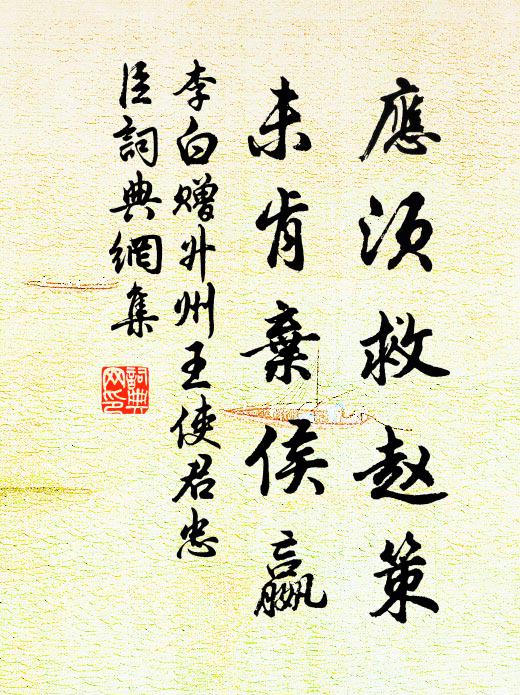 應須救赵策
未肯棄侯嬴
李白赠升州王使君忠
臣詞典網集
詞典网印